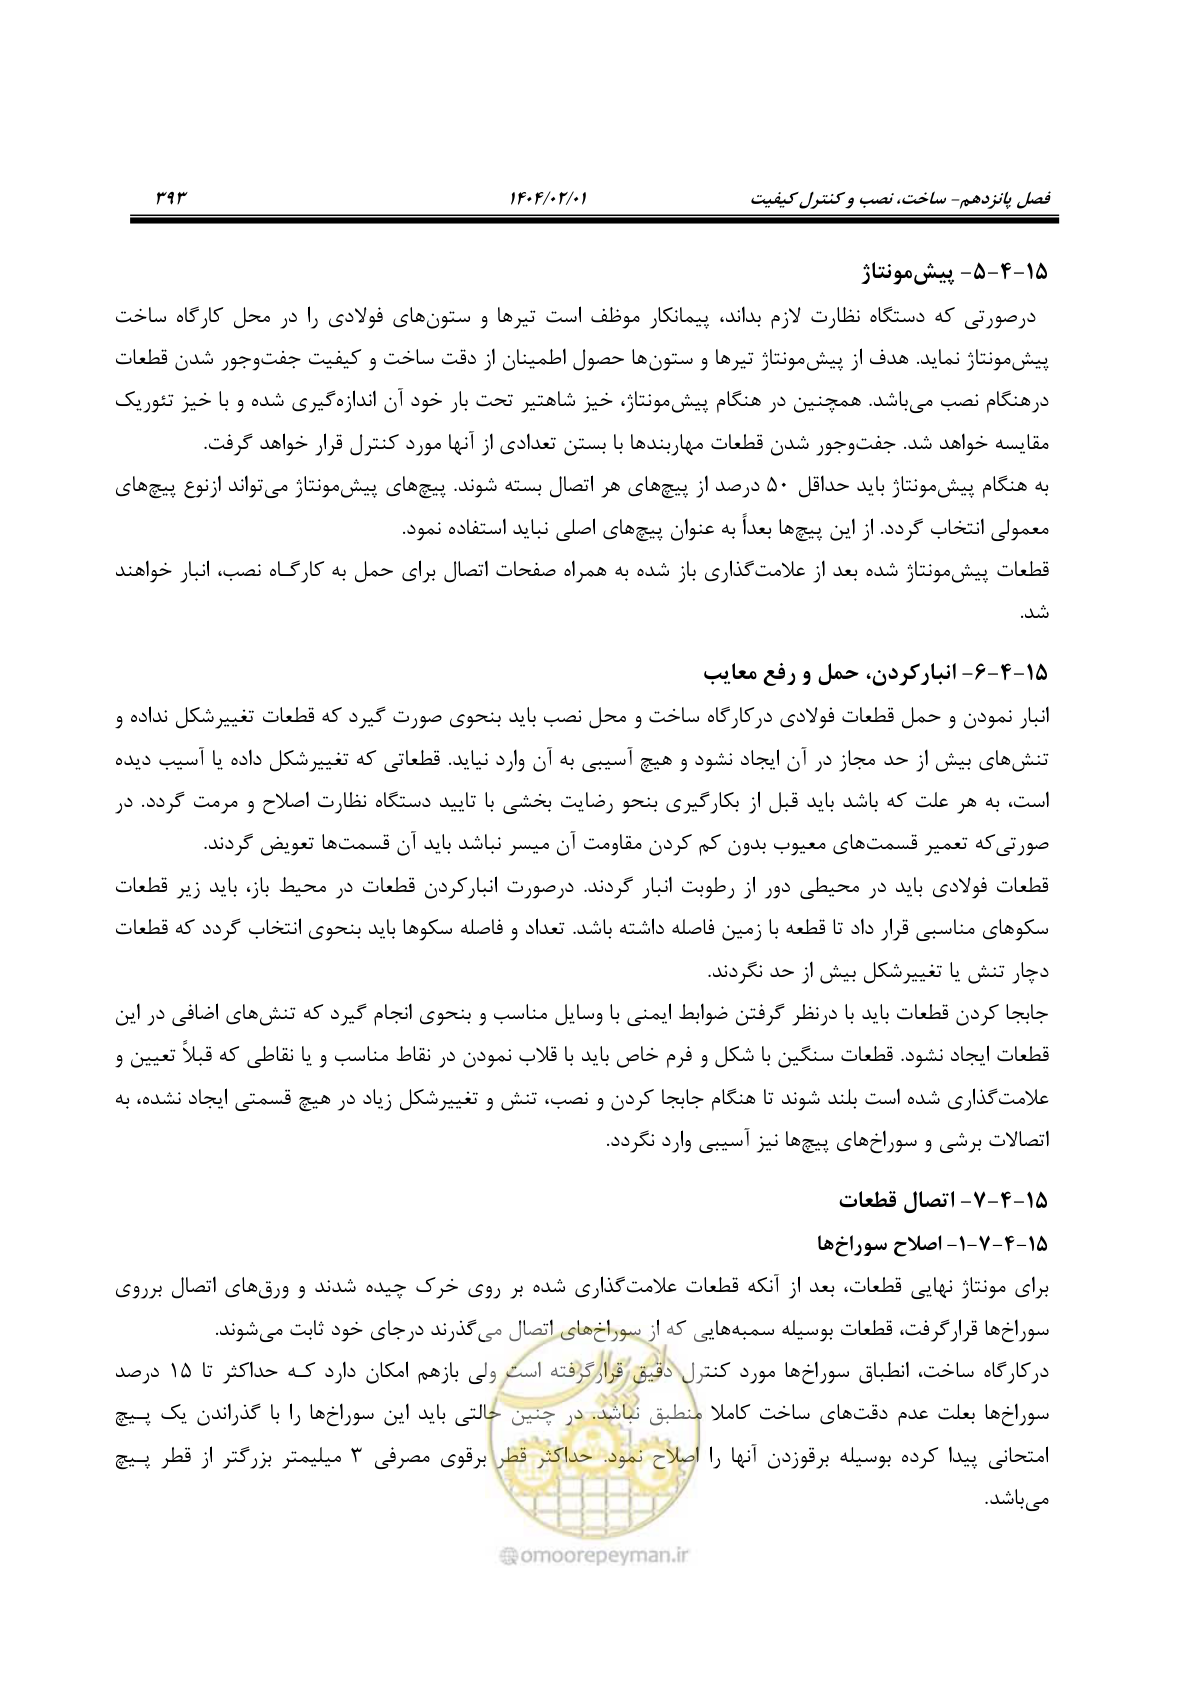 فصل پانزدهم- ساخت، نصب و کنترل کیفیت ۱۴۰۴/۰۲/۰۱ ۳۹۳
۱۵-۴-۵- پیش‌مونتاژ
درصورتی که دستگاه نظارت لازم بداند، پیمانکار موظف است تیرها و ستون‌های فولادی را در محل کارگاه ساخت
پیش‌مونتاژ نماید. هدف از پیش‌مونتاژ تیرها و ستون‌ها حصول اطمینان از دقت ساخت و کیفیت جفت‌وجور شدن قطعات
درهنگام نصب می‌باشد. همچنین در هنگام پیش‌مونتاژ، خیز شاهتیر تحت بار خود آن اندازه‌گیری شده و با خیز تئوریک
مقایسه خواهد شد. جفت‌وجور شدن قطعات مهاربندها با بستن تعدادی از آنها مورد کنترل قرار خواهد گرفت.
به هنگام پیش‌مونتاژ باید حداقل ۵۰ درصد از پیچ‌های هر اتصال بسته شوند. پیچ‌های پیش‌مونتاژ می‌تواند ازنوع پیچ‌های
معمولی انتخاب گردد. از این پیچ‌ها بعداً به عنوان پیچ‌های اصلی نباید استفاده نمود.
قطعات پیش‌مونتاژ شده بعد از علامت‌گذاری باز شده به همراه صفحات اتصال برای حمل به کارگـاه نصب، انبار خواهند
شد.
۱۵-۴-۶- انبارکردن، حمل و رفع معایب
انبار نمودن و حمل قطعات فولادی درکارگاه ساخت و محل نصب باید بنحوی صورت گیرد که قطعات تغییرشکل نداده و
تنش‌های بیش از حد مجاز در آن ایجاد نشود و هیچ آسیبی به آن وارد نیاید. قطعاتی که تغییرشکل داده یا آسیب دیده
است، به هر علت که باشد باید قبل از بکارگیری بنحو رضایت بخشی با تایید دستگاه نظارت اصلاح و مرمت گردد. در
صورتی‌که تعمیر قسمت‌های معیوب بدون کم کردن مقاومت آن میسر نباشد باید آن قسمت‌ها تعویض گردند.
قطعات فولادی باید در محیطی دور از رطوبت انبار گردند. درصورت انبارکردن قطعات در محیط باز، باید زیر قطعات
سکوهای مناسبی قرار داد تا قطعه با زمین فاصله داشته باشد. تعداد و فاصله سکوها باید بنحوی انتخاب گردد که قطعات
دچار تنش یا تغییرشکل بیش از حد نگردند.
جابجا کردن قطعات باید با درنظر گرفتن ضوابط ایمنی با وسایل مناسب و بنحوی انجام گیرد که تنش‌های اضافی در این
قطعات ایجاد نشود. قطعات سنگین با شکل و فرم خاص باید با قلاب نمودن در نقاط مناسب و یا نقاطی که قبلاً تعیین و
علامت‌گذاری شده است بلند شوند تا هنگام جابجا کردن و نصب، تنش و تغییرشکل زیاد در هیچ قسمتی ایجاد نشده، به
اتصالات برشی و سوراخ‌های پیچ‌ها نیز آسیبی وارد نگردد.
۱۵-۴-۷- اتصال قطعات
۱۵-۴-۷-۱- اصلاح سوراخ‌ها
برای مونتاژ نهایی قطعات، بعد از آنکه قطعات علامت‌گذاری شده بر روی خرک چیده شدند و ورق‌های اتصال برروی
سوراخ‌ها قرارگرفت، قطعات بوسیله سمبه‌هایی که از سوراخ‌های اتصال می‌گذرند درجای خود ثابت می‌شوند.
درکارگاه ساخت، انطباق سوراخ‌ها مورد کنترل دقیق قرارگرفته است ولی بازهم امکان دارد کـه حداکثر تا ۱۵ درصد
سوراخ‌ها بعلت عدم دقت‌های ساخت کاملا منطبق نباشد. در چنین حالتی باید این سوراخ‌ها را با گذراندن یک پـیچ
امتحانی پیدا کرده بوسیله برقوزدن آنها را اصلاح نمود. حداکثر قطر برقوی مصرفی ۳ میلیمتر بزرگتر از قطر پـیچ
می‌باشد.
امور پیمان
@omoorepeyman.ir